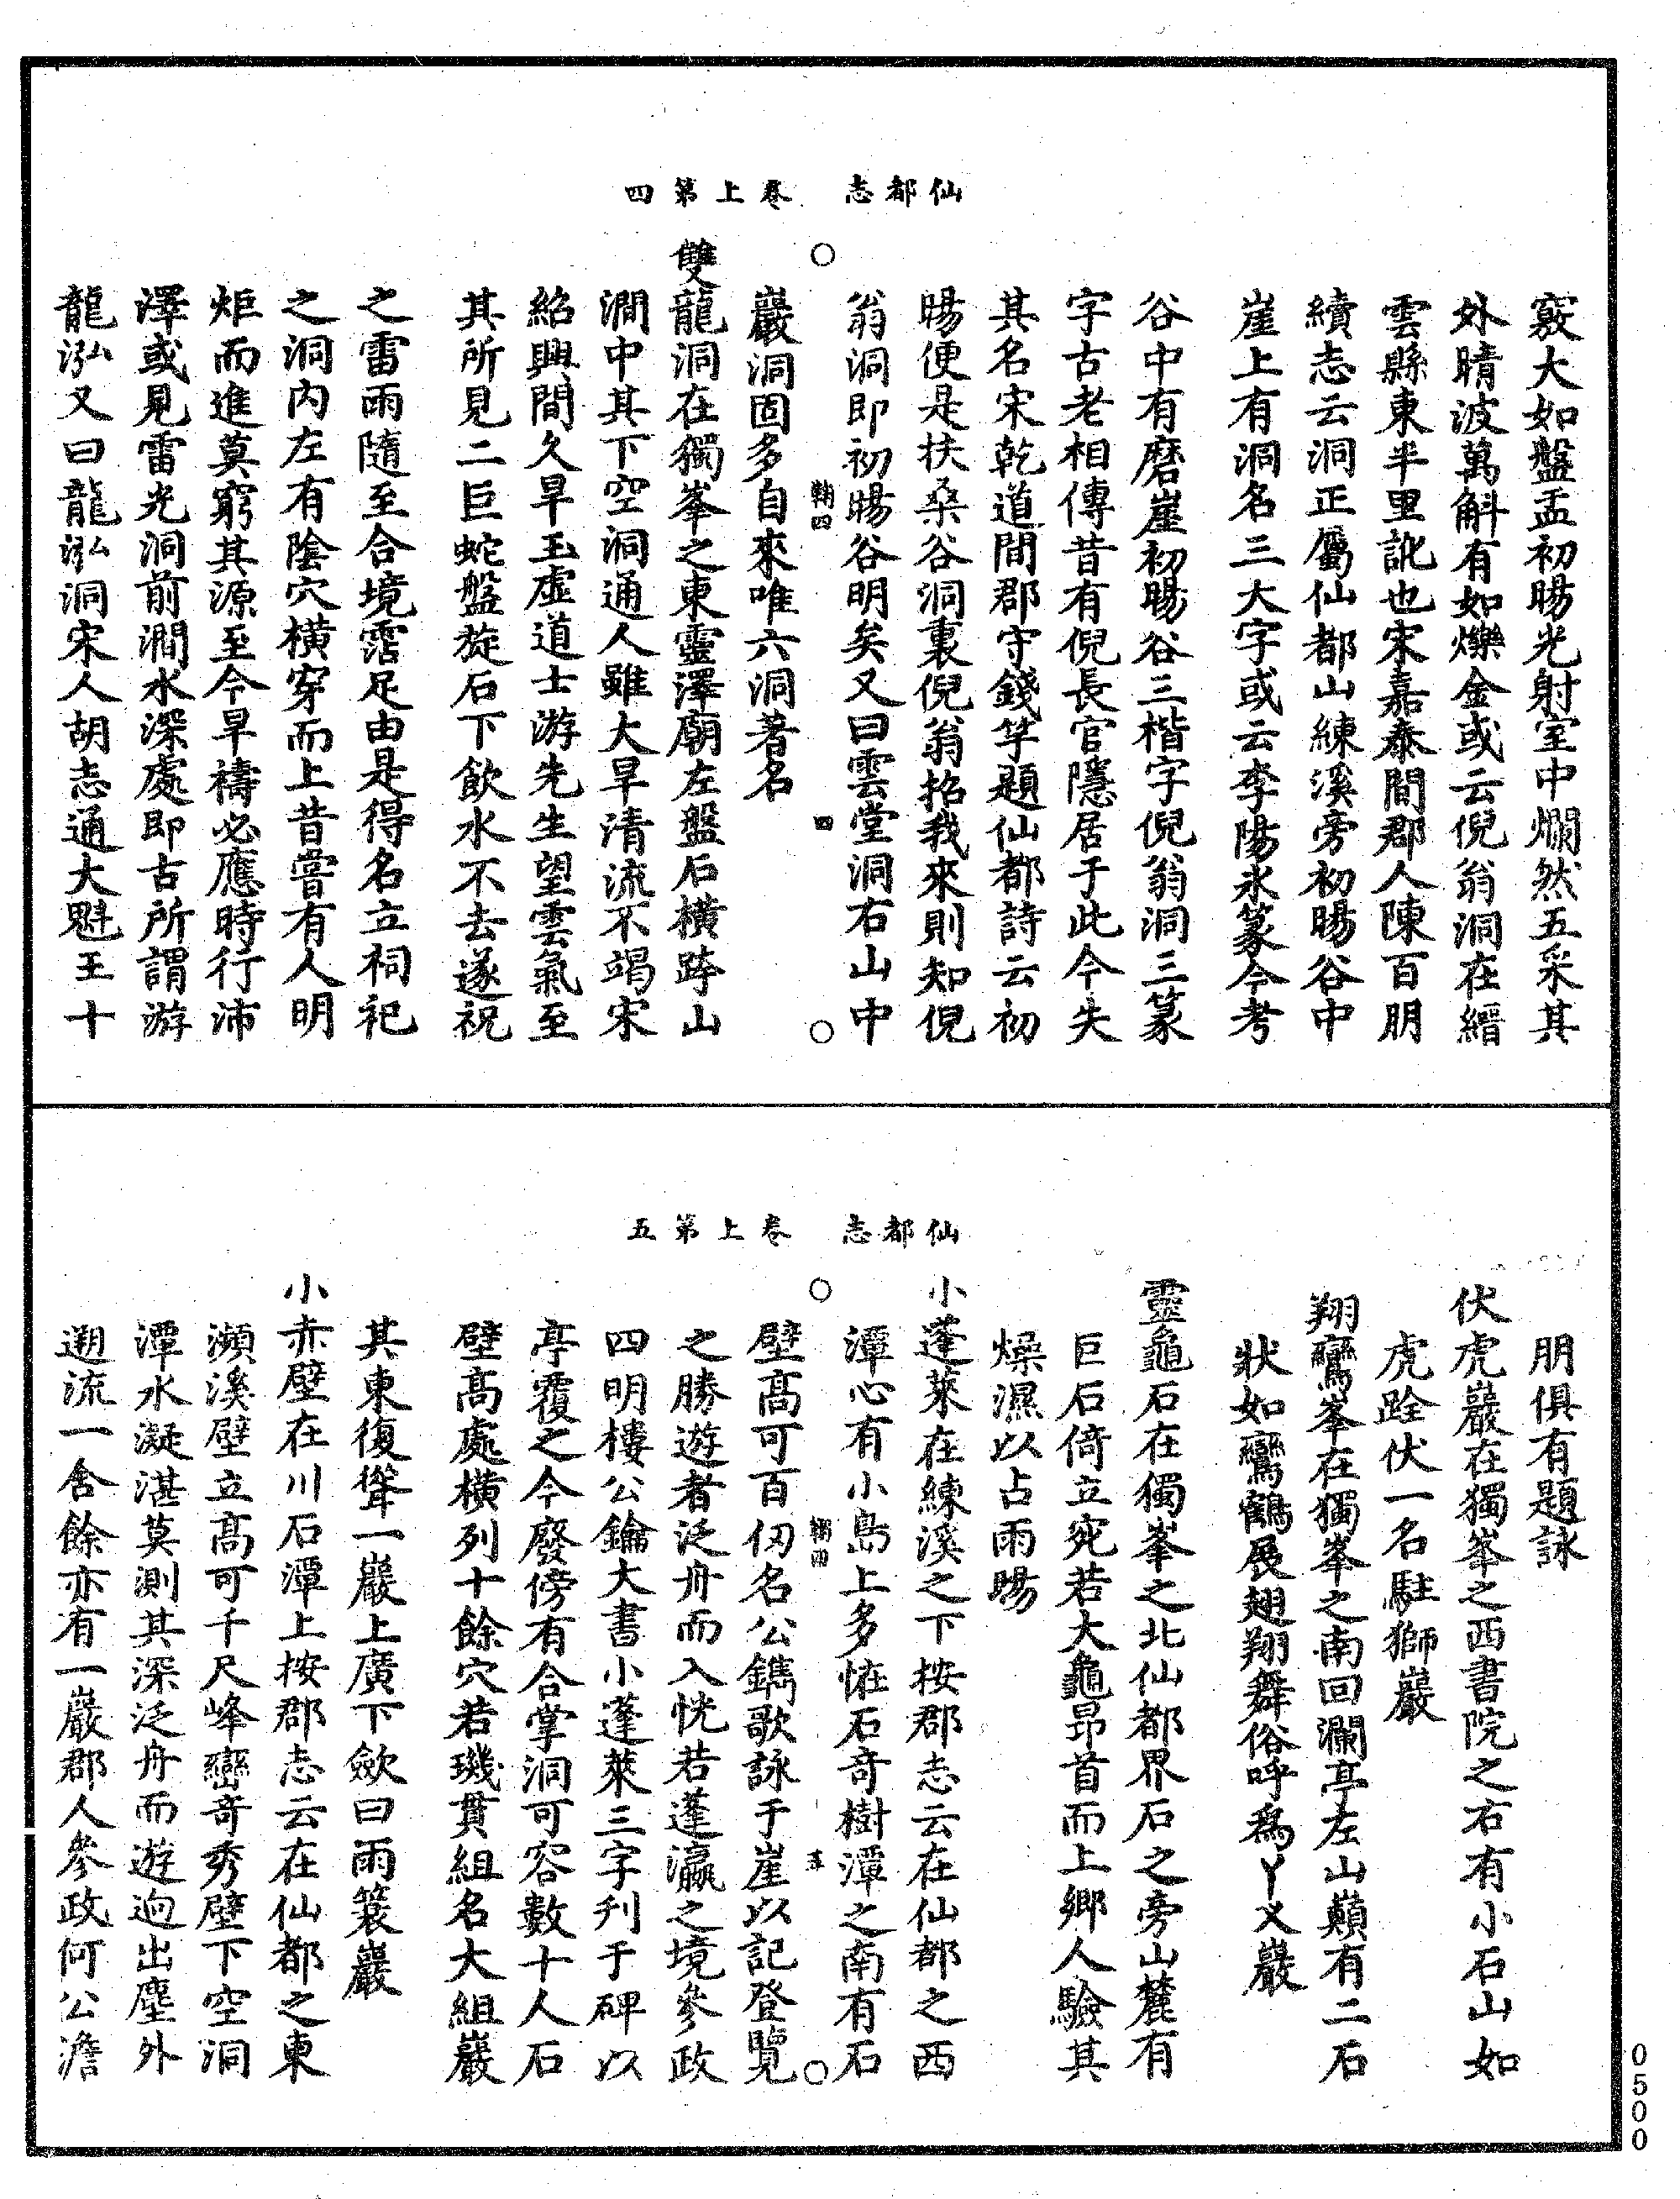 仙都志　卷上第四
竅大如盤盂初暘光射室中爛然五采其
外晴波萬斛有如爍金或云倪翁洞在縉
雲縣東半里訛也宋嘉泰間郡人陳百朋
續志云洞正屬仙都山練溪旁初暘谷中
崖上有洞名三大字或云李陽氷篆今考
谷中有磨崖初暘谷三楷字倪翁洞三篆
字古老相傳昔有倪長官隱居于此今失
其名宋乾道間郡守錢竽題仙都詩云初
暘便是扶桑谷洞裏倪翁招我來則知倪
翁洞即初暘谷明矣又曰雲堂洞右山中
鞠四　四
巖洞固多自來唯六洞著名
雙龍洞在獨峯之東靈澤廟左盤石橫跨山
澗中其下空洞通人雖大旱清流不竭宋
紹興間久旱玉虛道士游先生望雲氣至
其所見二巨蛇盤旋石下飲水不去遂祝
之雷雨隨至合境霑足由是得名立祠祀
之洞內左有陰穴橫穿而上昔嘗有人明
炬而進莫窮其源至今旱禱必應時行沛
澤或見雷光洞前澗水深處即古所謂游
龍泓又曰龍泓洞宋人胡志通大魁王十
仙都志　卷上第五
朋俱有題詠
伏虎巖在獨峯之西書院之右有小石山如
虎跧伏一名駐獅巖
翔鸞峯在獨峯之南回瀾亭左山巔有二石
狀如鸞鶴展翅翔舞俗呼為丫乂巖
靈龜石在獨峯之北仙都界石之旁山麓有
巨石倚立宛若大龜昂首而上鄉人驗其
燥濕以占雨暘
小蓬萊在練溪之下按郡志云在仙都之西
潭心有小島上多恠石奇樹潭之南有石
鞠四　五
壁高可百仞名公鐫歌詠于崖以記登覽
之勝遊者泛舟而入恍若蓬瀛之境參政
四明樓公鑰大書小蓬萊三字刋于碑以
亭覆之今廢傍有合掌洞可容數十人石
壁高處橫列十餘穴若璣貫組名大組巖
其東復聳一巖上廣下歛曰雨簑巖
小赤壁在川石潭上按郡志云在仙都之東
瀕溪壁立高可千尺峰巒奇秀壁下空洞
潭水凝湛莫測其深泛舟而遊逈出塵外
遡流一舍餘亦有一巖郡人參政何公澹
0500